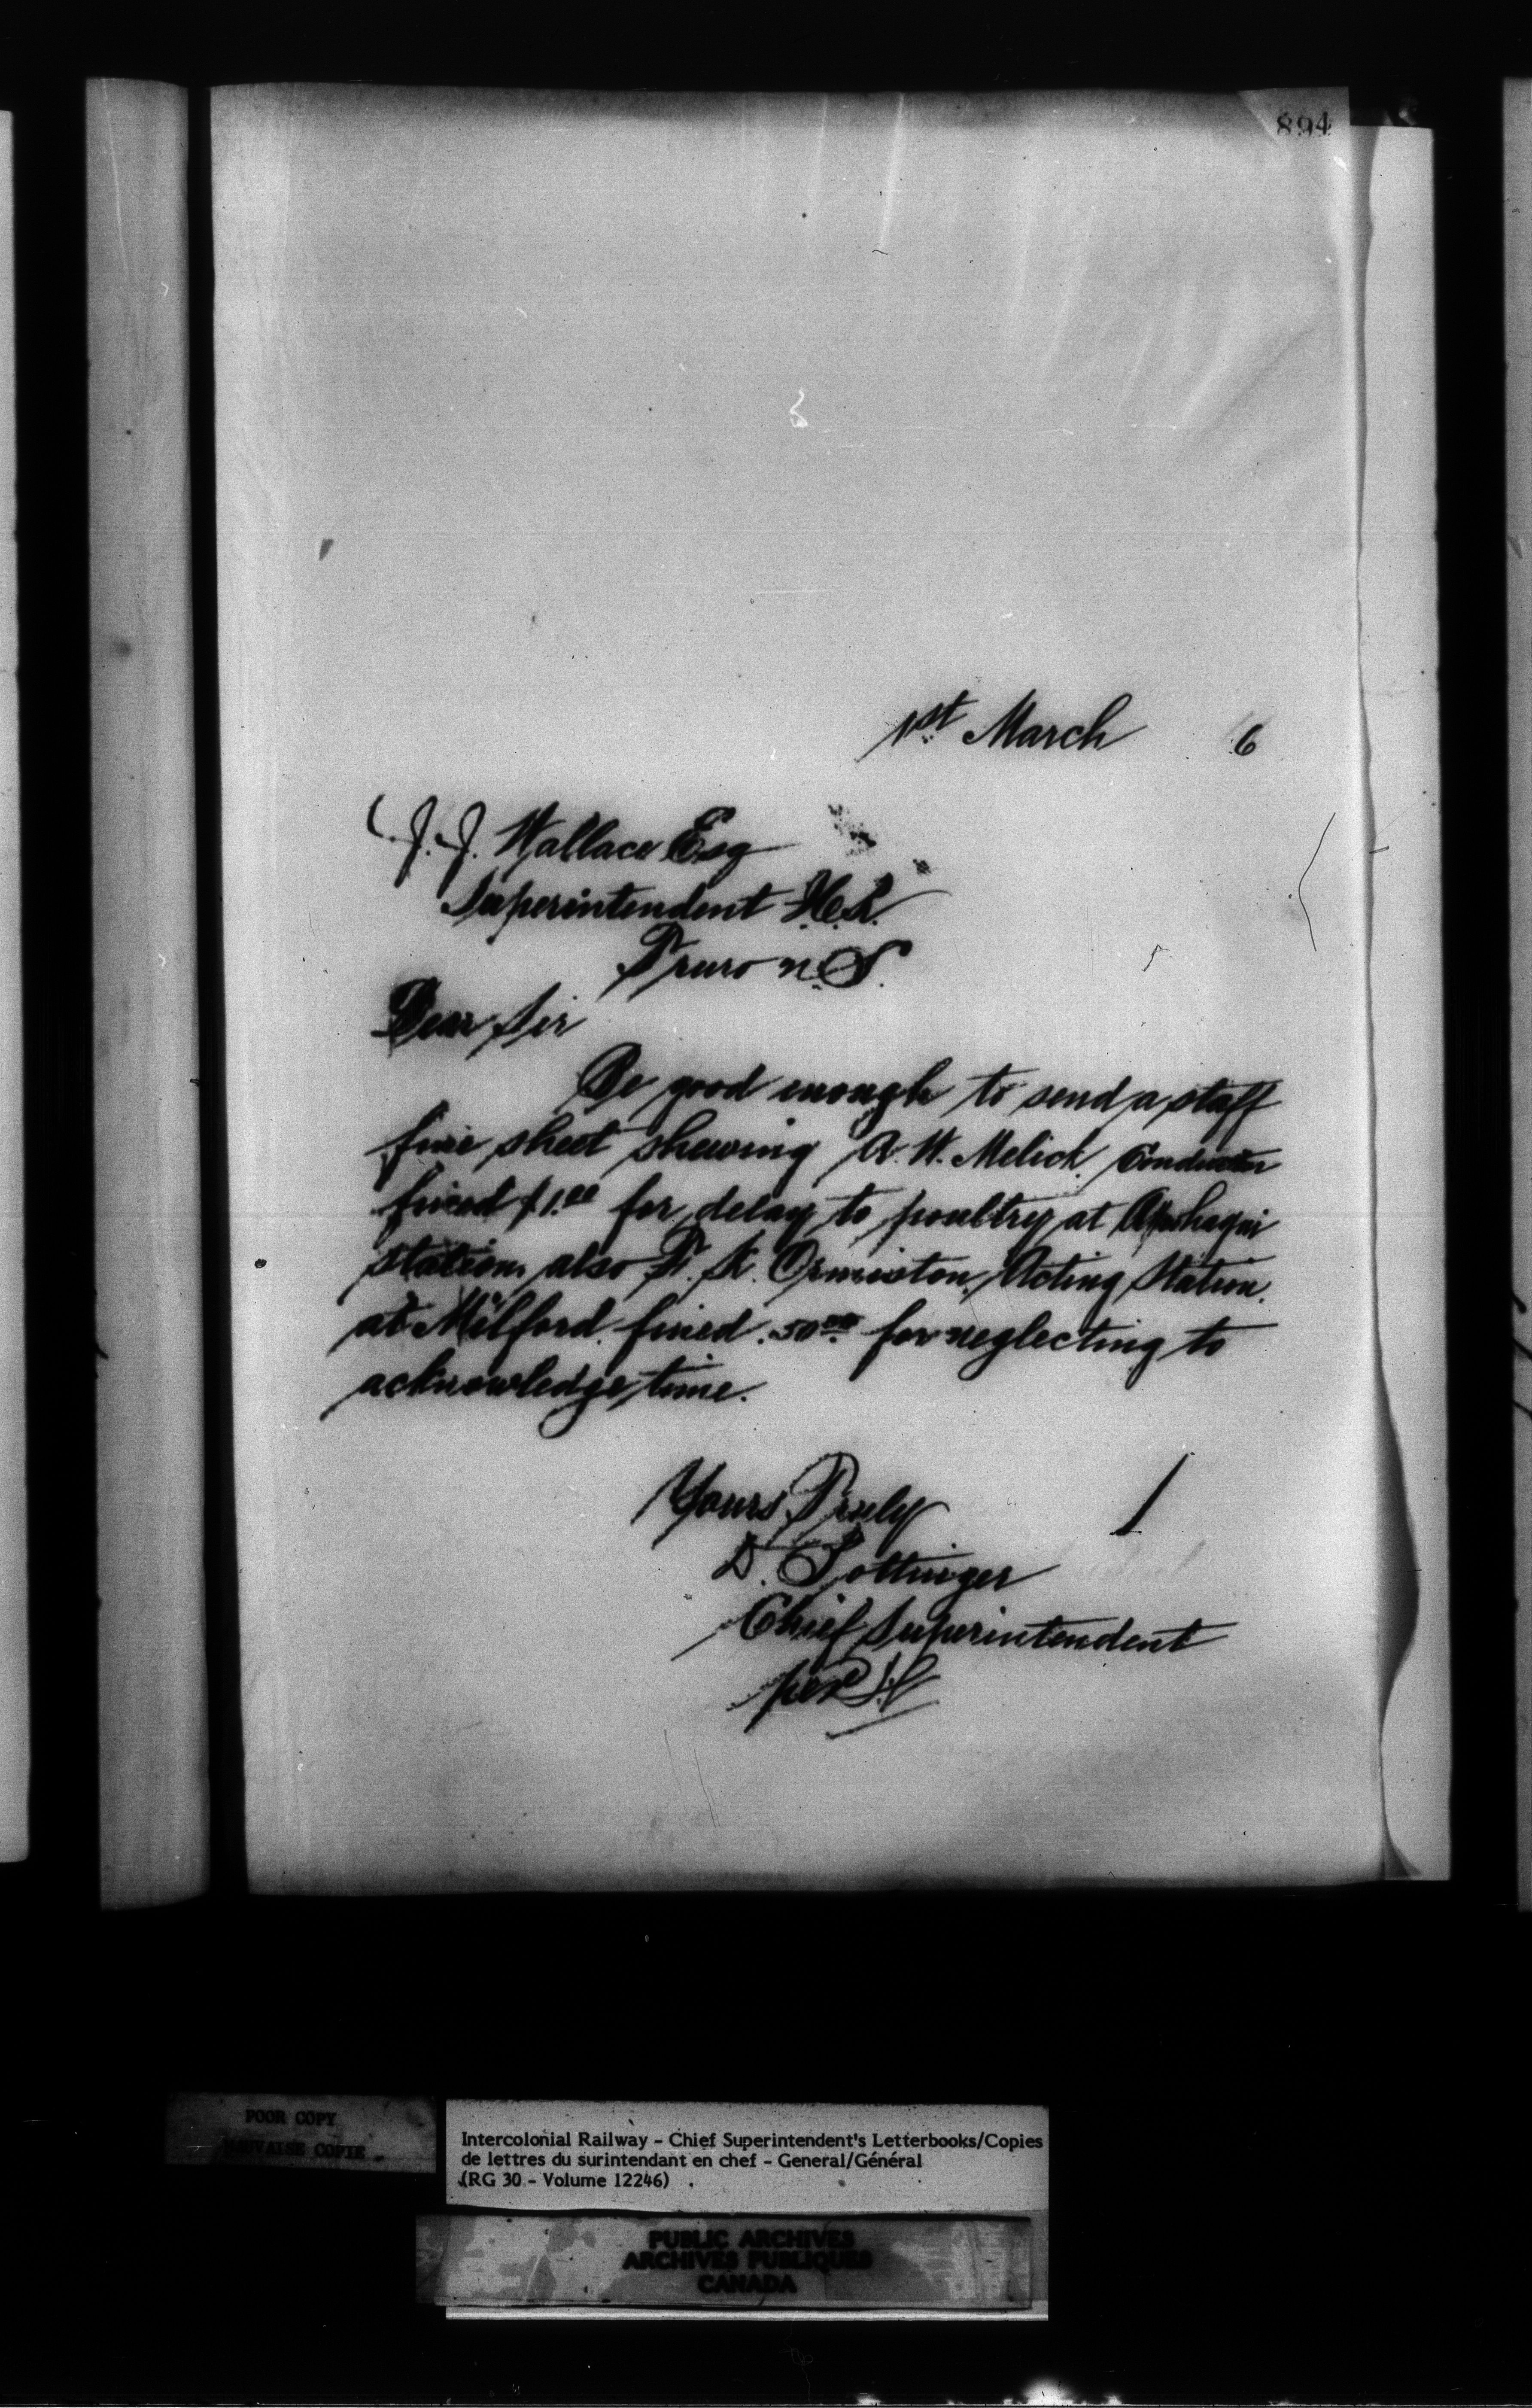 894
1st March 6
J. J. Wallace Esq
Superintendent I.C.R.
Truro N.S.
Dear Sir
Be good enough to send a staff
fine sheet shewing A. W. Melick Conductor
fined $1.00 for delay to poultry at Apohaqui
station also F. K. Ormiston Acting Station.
at Milford fined .50 00 for neglecting to
acknowledge time.
Yours Truly
D. Pottinger
Chief Superintendent
per
POOR COPY
MAUVAISE COPIE
Intercolonial Railway - Chief Superintendent's Letterbooks/Copies
de lettres du surintendant en chef - General/Général
(RG 30 - Volume 12246)
PUBLIC ARCHIVES
ARCHIVES PUBLIQUES
CANADA